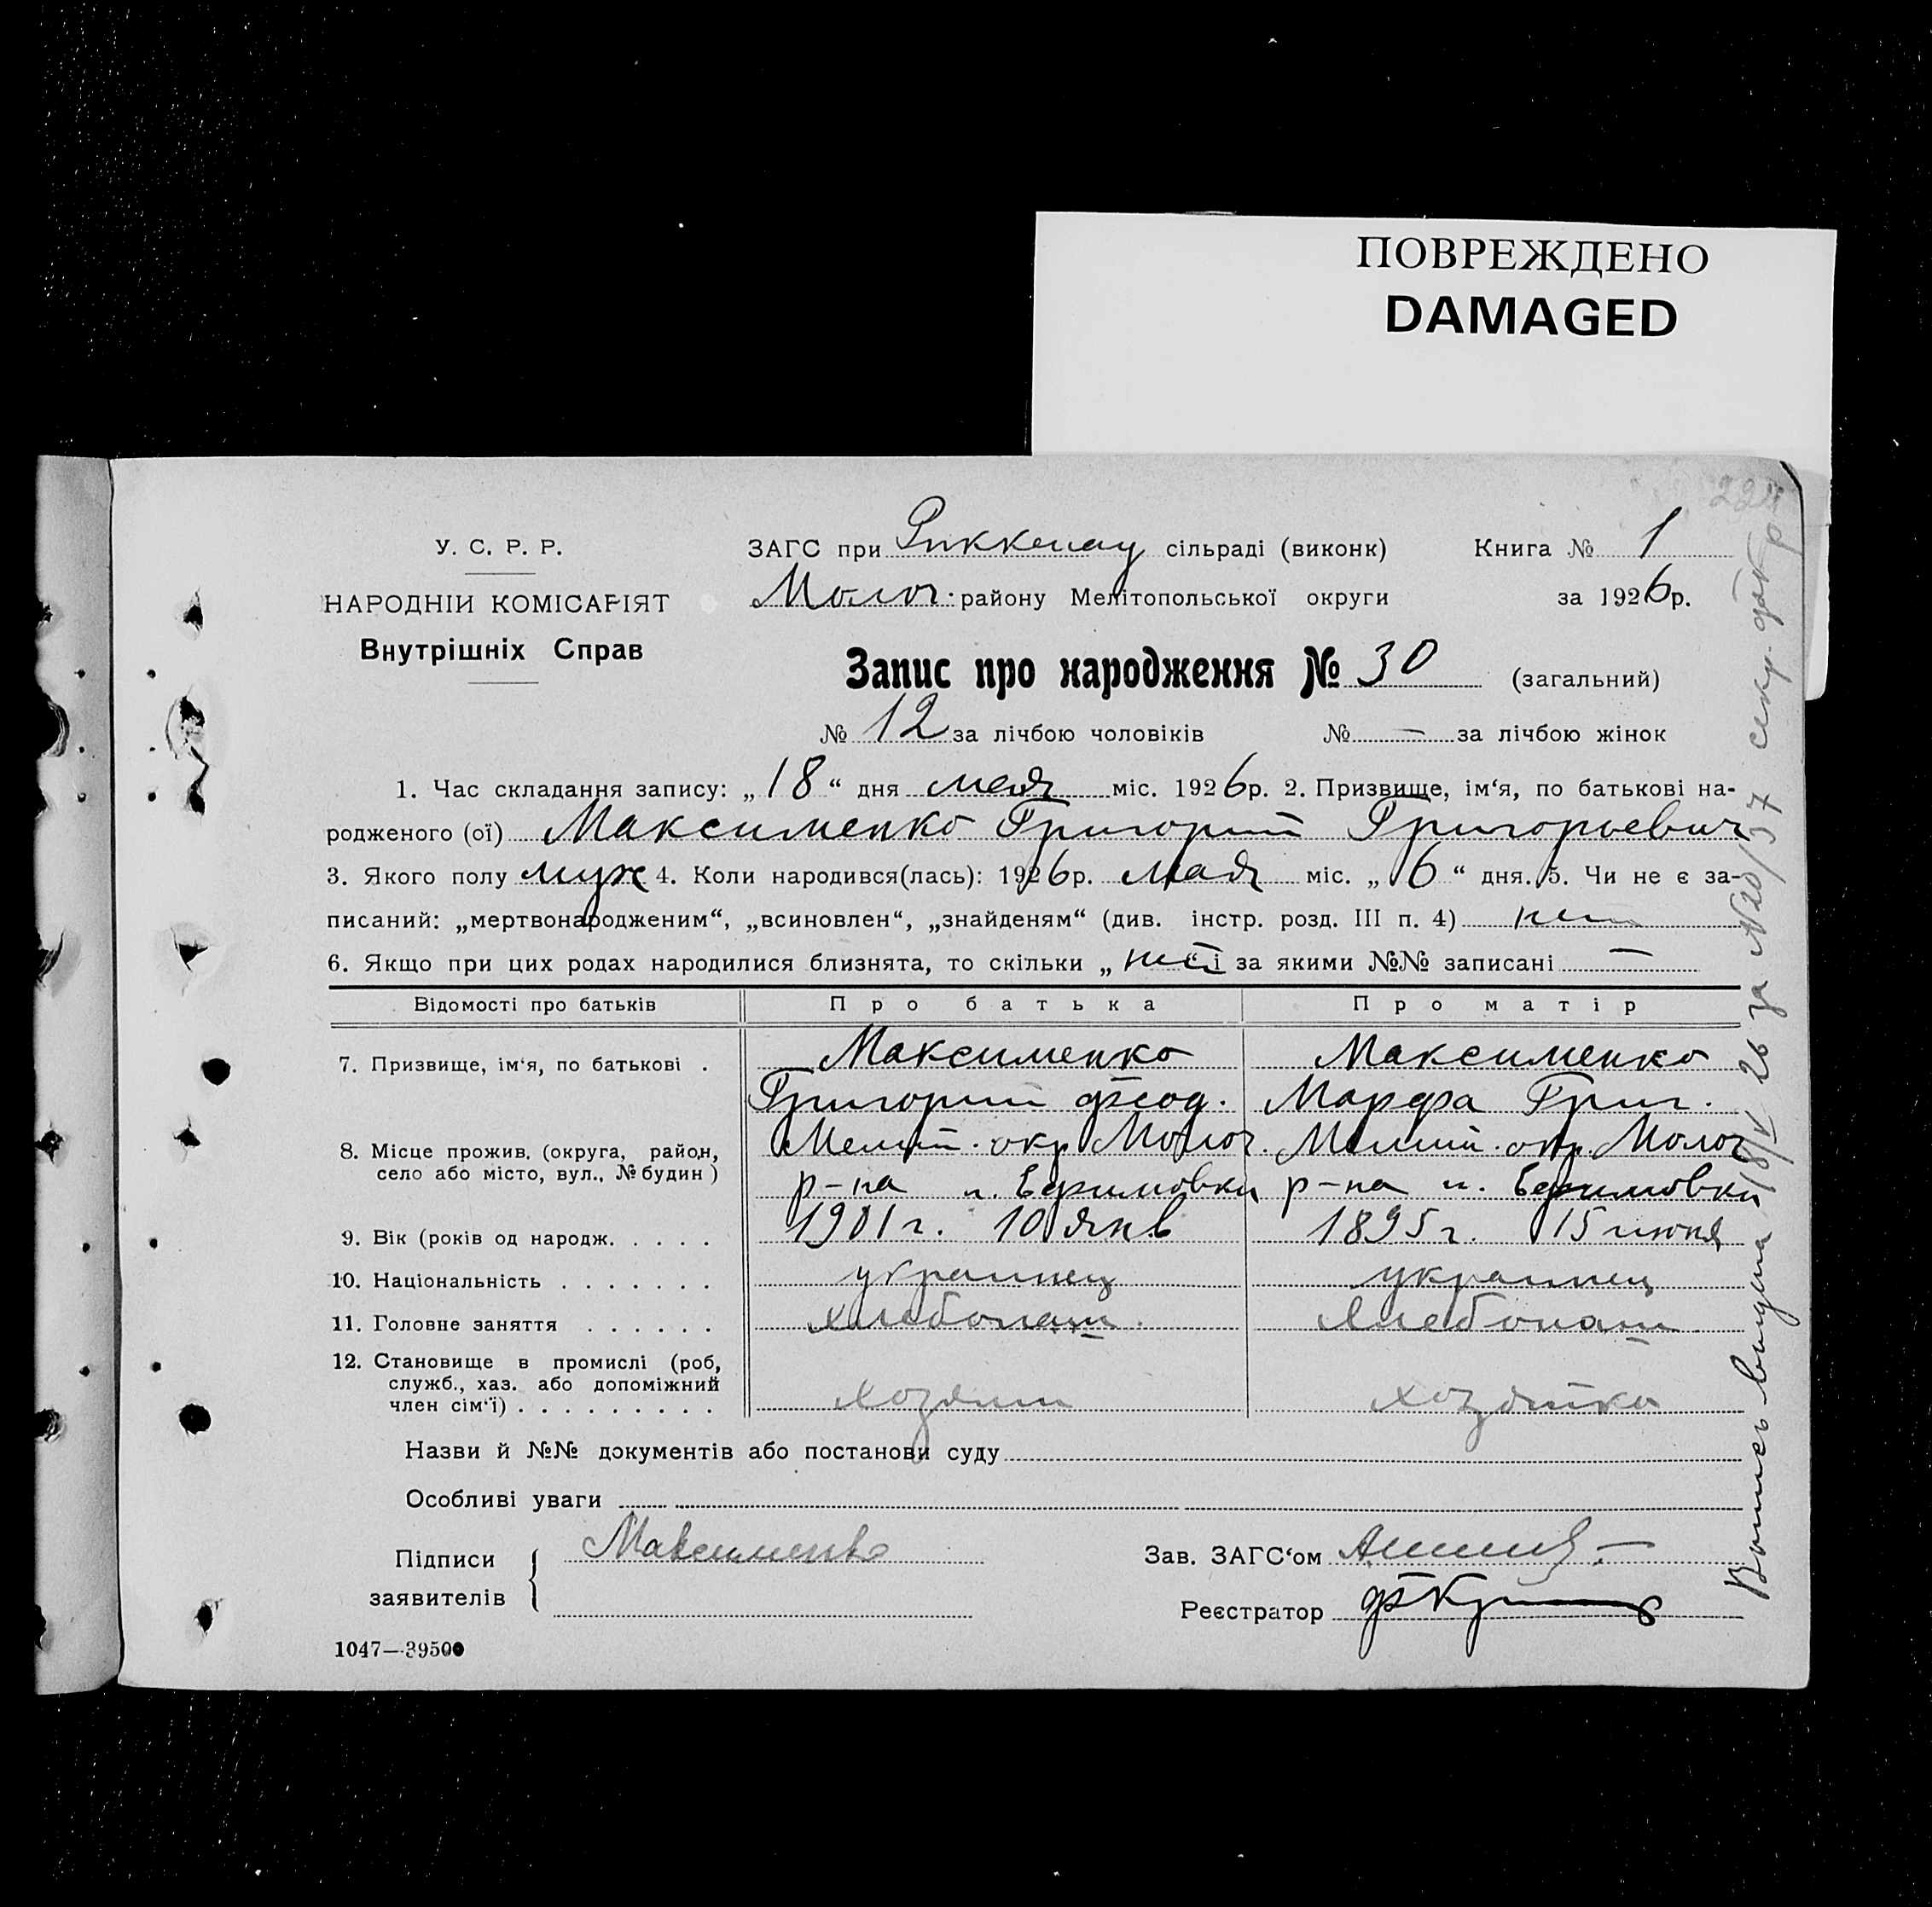 ПОВРЕЖДЕНО
DAMAGED
У. С. Р. Р.
НАРОДНІИ КОМІСАРІЯТ
Внутрішніх Справ
ЗАГС при Риккенау сільраді (виконк) Книга № 1
Молоч. району Мелітопольської округи за 1926р.
Запис про народження № 30 (загальний)
№ 12 за лічбою чоловіків № — за лічбою жінок
1. Час складання запису: „18“ дня мая міс. 1926р. 2. Призвище, ім‘я, по батькові на-
родженого (ої) Максименко Григорий Григорьевич
3. Якого полу муж 4. Коли народився(лась): 1926р. мая міс. „6“ дня. 5. Чи не є за-
писаний: „мертвонародженим“, „всиновлен“, „знайденям“ (див. інстр. розд. III п. 4) нет
6. Якщо при цих родах народилися близнята, то скільки „ нет і за якими №№ записані —
Відомості про батьків Про батька Про матір
7. Призвище, ім‘я, по батькові . Максименко Максименко
Григорий Феод. Марфа Григ.
8. Місце прожив. (округа, район, село або місто, вул., № будин) Мелит. окр. Молоч. Мелит. окр. Молоч
р-на Ефимовки р-на Ефимовки
9. Вік (років од народж. . . . . 1901 г. 10 янв 1895 г. 15 июня
10. Національність . . . . . . . украинец украинец
11. Головне заняття . . . . . . хлебопаш. хлебопаш.
12. Становище в промислі (роб, служб., хаз. або допоміжний член сім‘ї) . . . . . . . . . хозяин хозяйка
Назви й №№ документів або постанови суду
Особливі уваги
Підписи заявителів Максименко
Зав. ЗАГС‘ом
Реєстратор
1047—39500
Выпись выдана 18/V 26 за №20/37 секр.